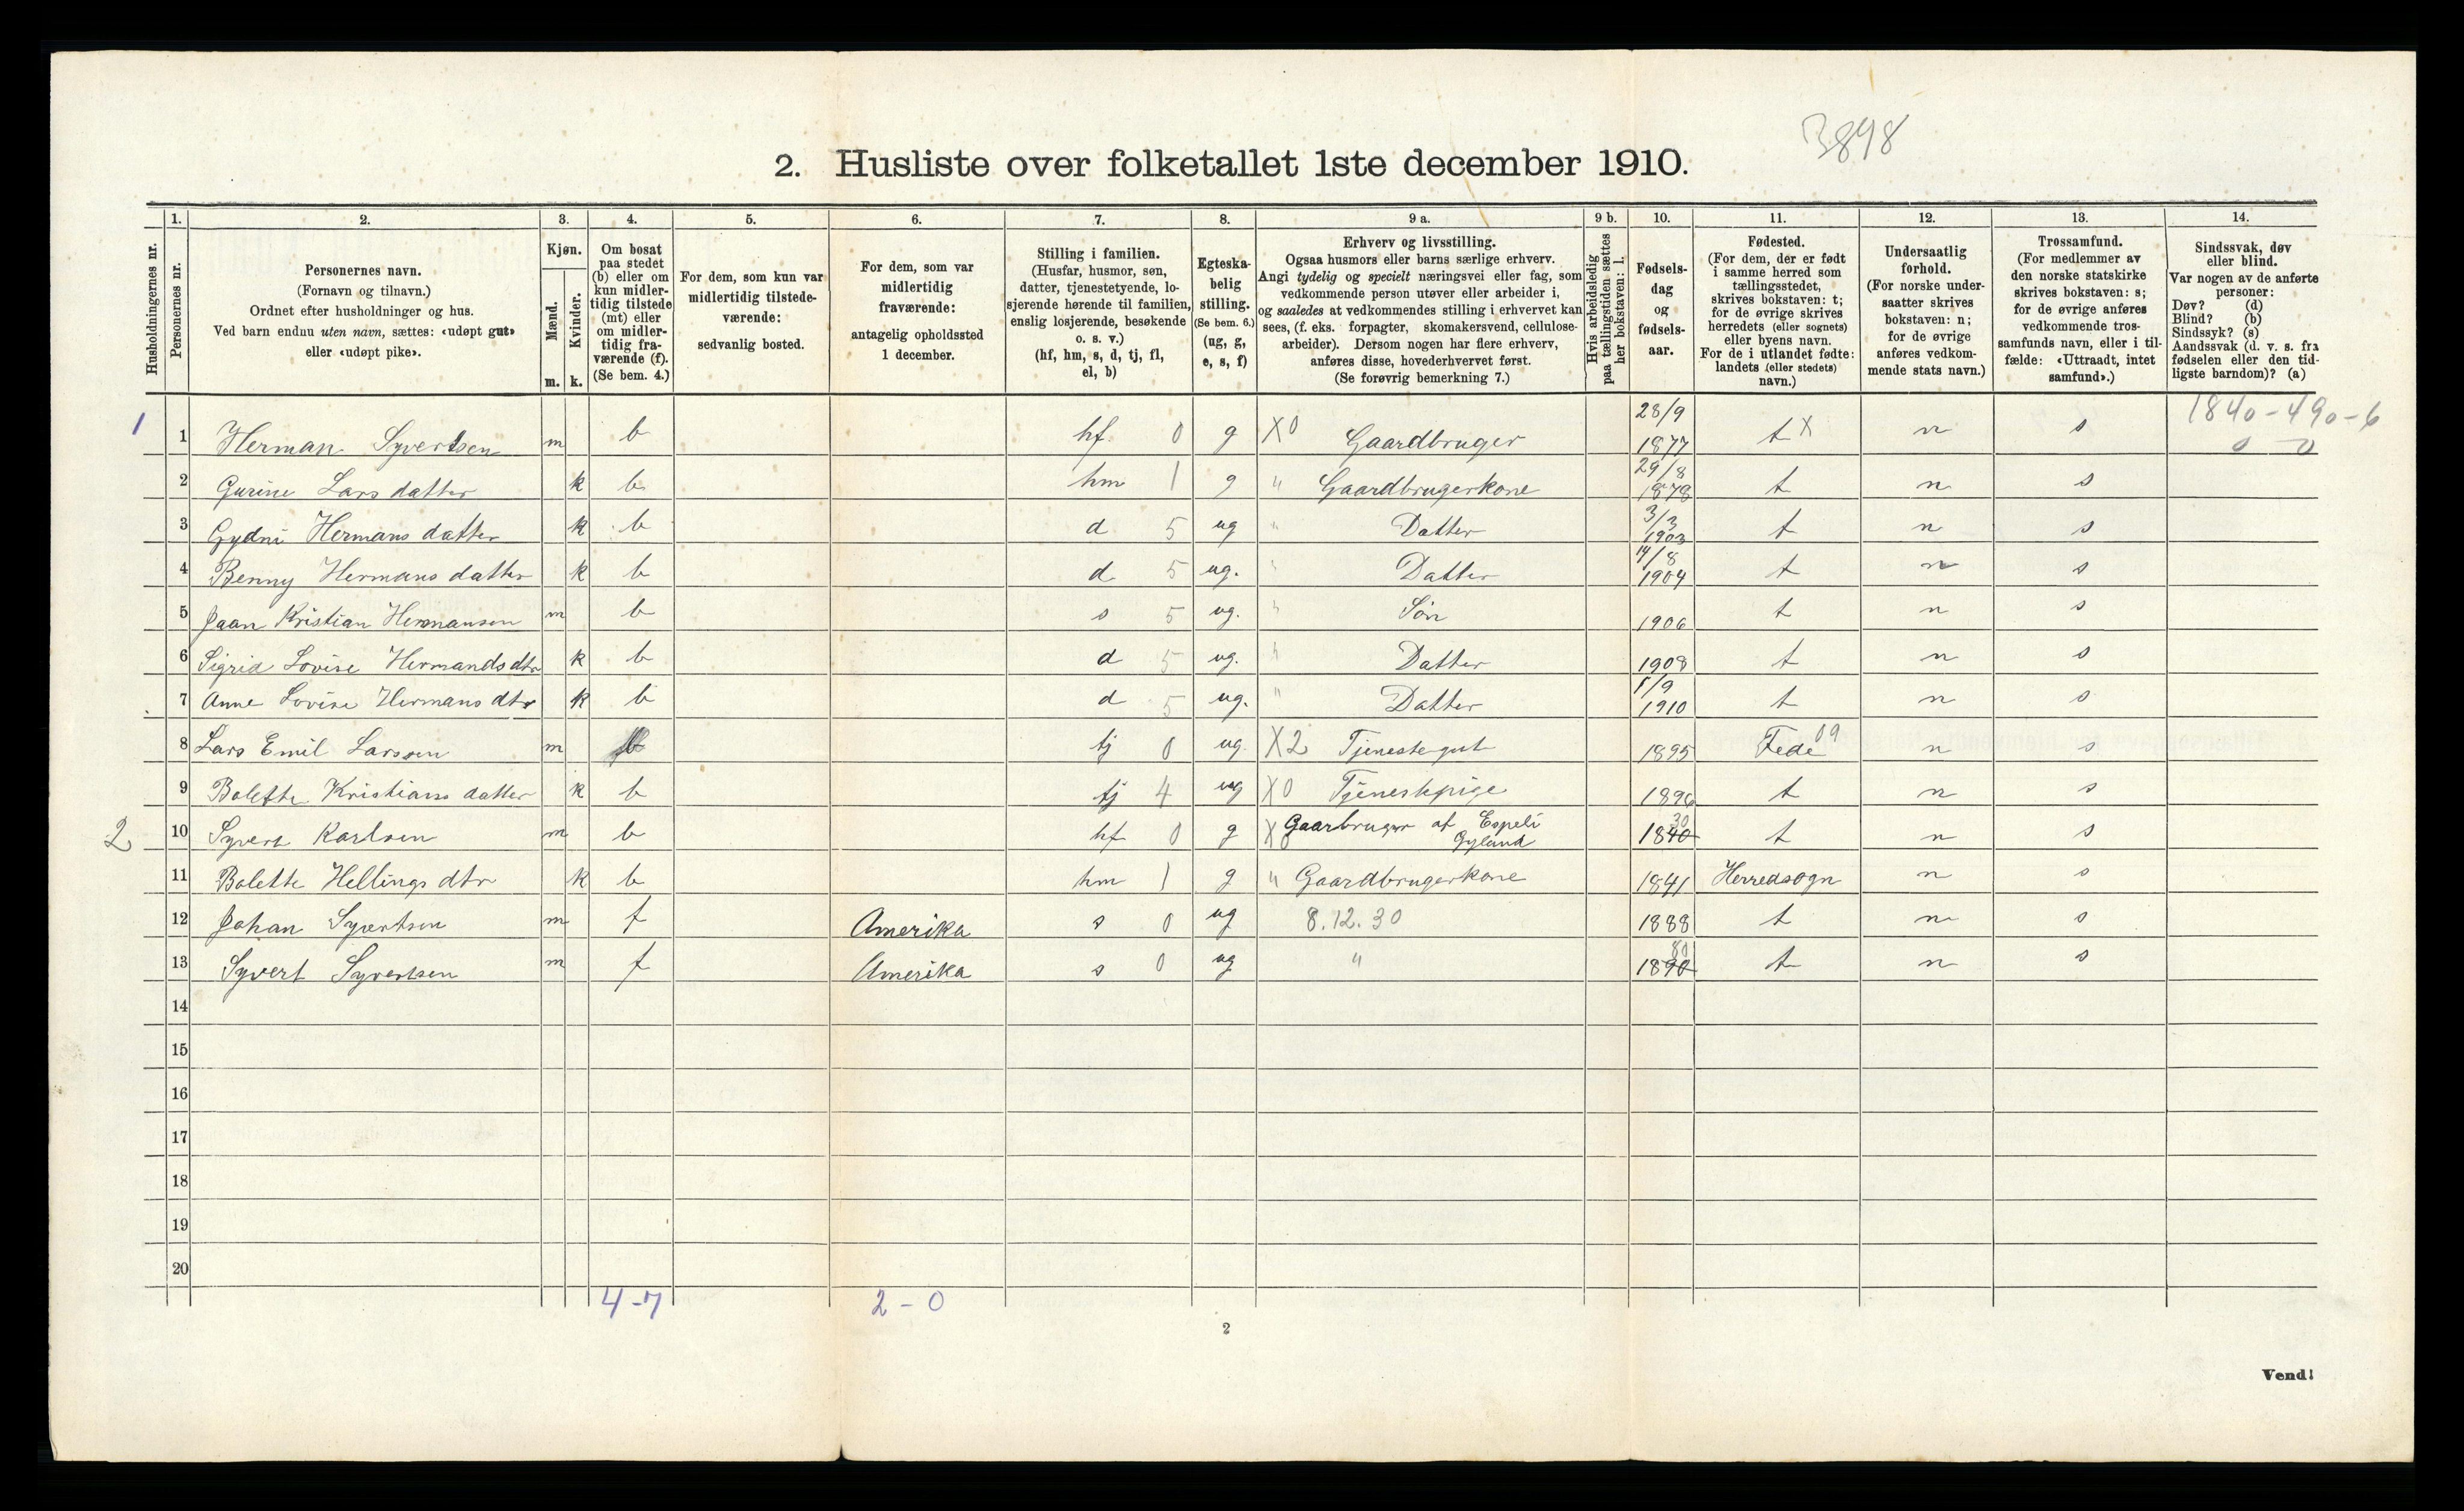 3898
2. Husliste over folketallet 1ste december 1910.
1. 2. 3. 4. 5. 6. 7. 8. 9 a. 9 b. 10. 11. 12. 13. 14.
Husholdningernes nr.
Personernes nr.
Personernes navn.
(Fornavn og tilnavn.)
Ordnet efter husholdninger og hus.
Ved barn endnu uten navn, sættes: «udøpt gut»
eller «udøpt pike».
Kjøn.
Mænd.
Kvinder.
m. k.
Om bosat
paa stedet
(b) eller om
kun midler-
tidig tilstede
(mt) eller
om midler-
tidig fra-
værende (f).
(Se bem. 4.)
For dem, som kun var
midlertidig tilstede-
værende:
sedvanlig bosted.
For dem, som var
midlertidig
fraværende:
antagelig opholdssted
1 december.
Stilling i familien.
(Husfar, husmor, søn,
datter, tjenestetyende, lo-
sjerende hørende til familien,
enslig losjerende, besøkende
o. s. v.)
(hf, hm, s, d, tj, fl,
el, b)
Egteska-
belig
stilling.
(Se bem. 6.)
(ug, g,
e, s, f)
Erhverv og livsstilling.
Ogsaa husmors eller barns særlige erhverv.
Angi tydelig og specielt næringsvei eller fag, som
vedkommende person utøver eller arbeider i,
og saaledes at vedkommendes stilling i erhvervet kan
sees, (f. eks. forpagter, skomakersvend, cellulose-
arbeider). Dersom nogen har flere erhverv,
anføres disse, hovederhvervet først.
(Se forøvrig bemerkning 7.)
Hvis arbeidsledig
paa tællingstiden sættes
her bokstaven: l.
Fødsels-
dag
og
fødsels-
aar.
Fødested.
(For dem, der er født
i samme herred som
tællingsstedet,
skrives bokstaven: t;
for de øvrige skrives
herredets (eller sognets)
eller byens navn.
For de i utlandet fødte:
landets (eller stedets)
navn.)
Undersaatlig
forhold.
(For norske under-
saatter skrives
bokstaven: n;
for de øvrige
anføres vedkom-
mende stats navn.)
Trossamfund.
(For medlemmer av
den norske statskirke
skrives bokstaven: s;
for de øvrige anføres
vedkommende tros-
samfunds navn, eller i til-
fælde: «Uttraadt, intet
samfund».)
Sindssvak, døv
eller blind.
Var nogen av de anførte
personer:
Døv? (d)
Blind? (b)
Sindssyk? (s)
Aandssvak (d. v. s. fra
fødselen eller den tid-
ligste barndom)? (a)
1840-490-6
0 0
1 1 Herman Syvertsen m b hf 0 g X0 Gaardbruger 28/9 1877 t X n s
2 Gurine Larsdatter k b hm 1 g " Gaardbrugerkone 29/8 1878 t n s
3 Gydni Hermansdatter k b d 5 ug " Datter 3/3 1903 t n s
4 Benny Hermansdatter k b d 5 ug. " Datter 14/8 1904 t n s
5 Jaan Kristian Hermansen m b s 5 ug. " Søn 1906 t n s
6 Sigrid Lovise Hermandsdtr k b d 5 ug. " Datter 1908 t n s
7 Anne Lovise Hermansdtr k b d 5 ug. " Datter 1/9 1910 t n s
8 Lars Emil Larssen m b tj 0 ug. X2 Tjenestegut 1895 Fede 09 n s
9 Bolette Kristiansdatter k b tj 4 ug X0 Tjenestepige 1896 t n s
2 10 Syvert Karlsen m b hf 0 g X0 Gaarbruger af Espeli Gyland 1840 30 t n s
11 Bolette Hellingsdtr k b hm 1 g " Gaardbrugerkone 1841 Herredsogn n s
12 Johan Syvertsen m f Amerika s 0 ug 8.12.30 1888 t n s
13 Syvert Syvertsen m f Amerika s 0 ug " 1890 80 t n s
14
15
16
17
18
19
20
4-7 2-0
2
Vend!